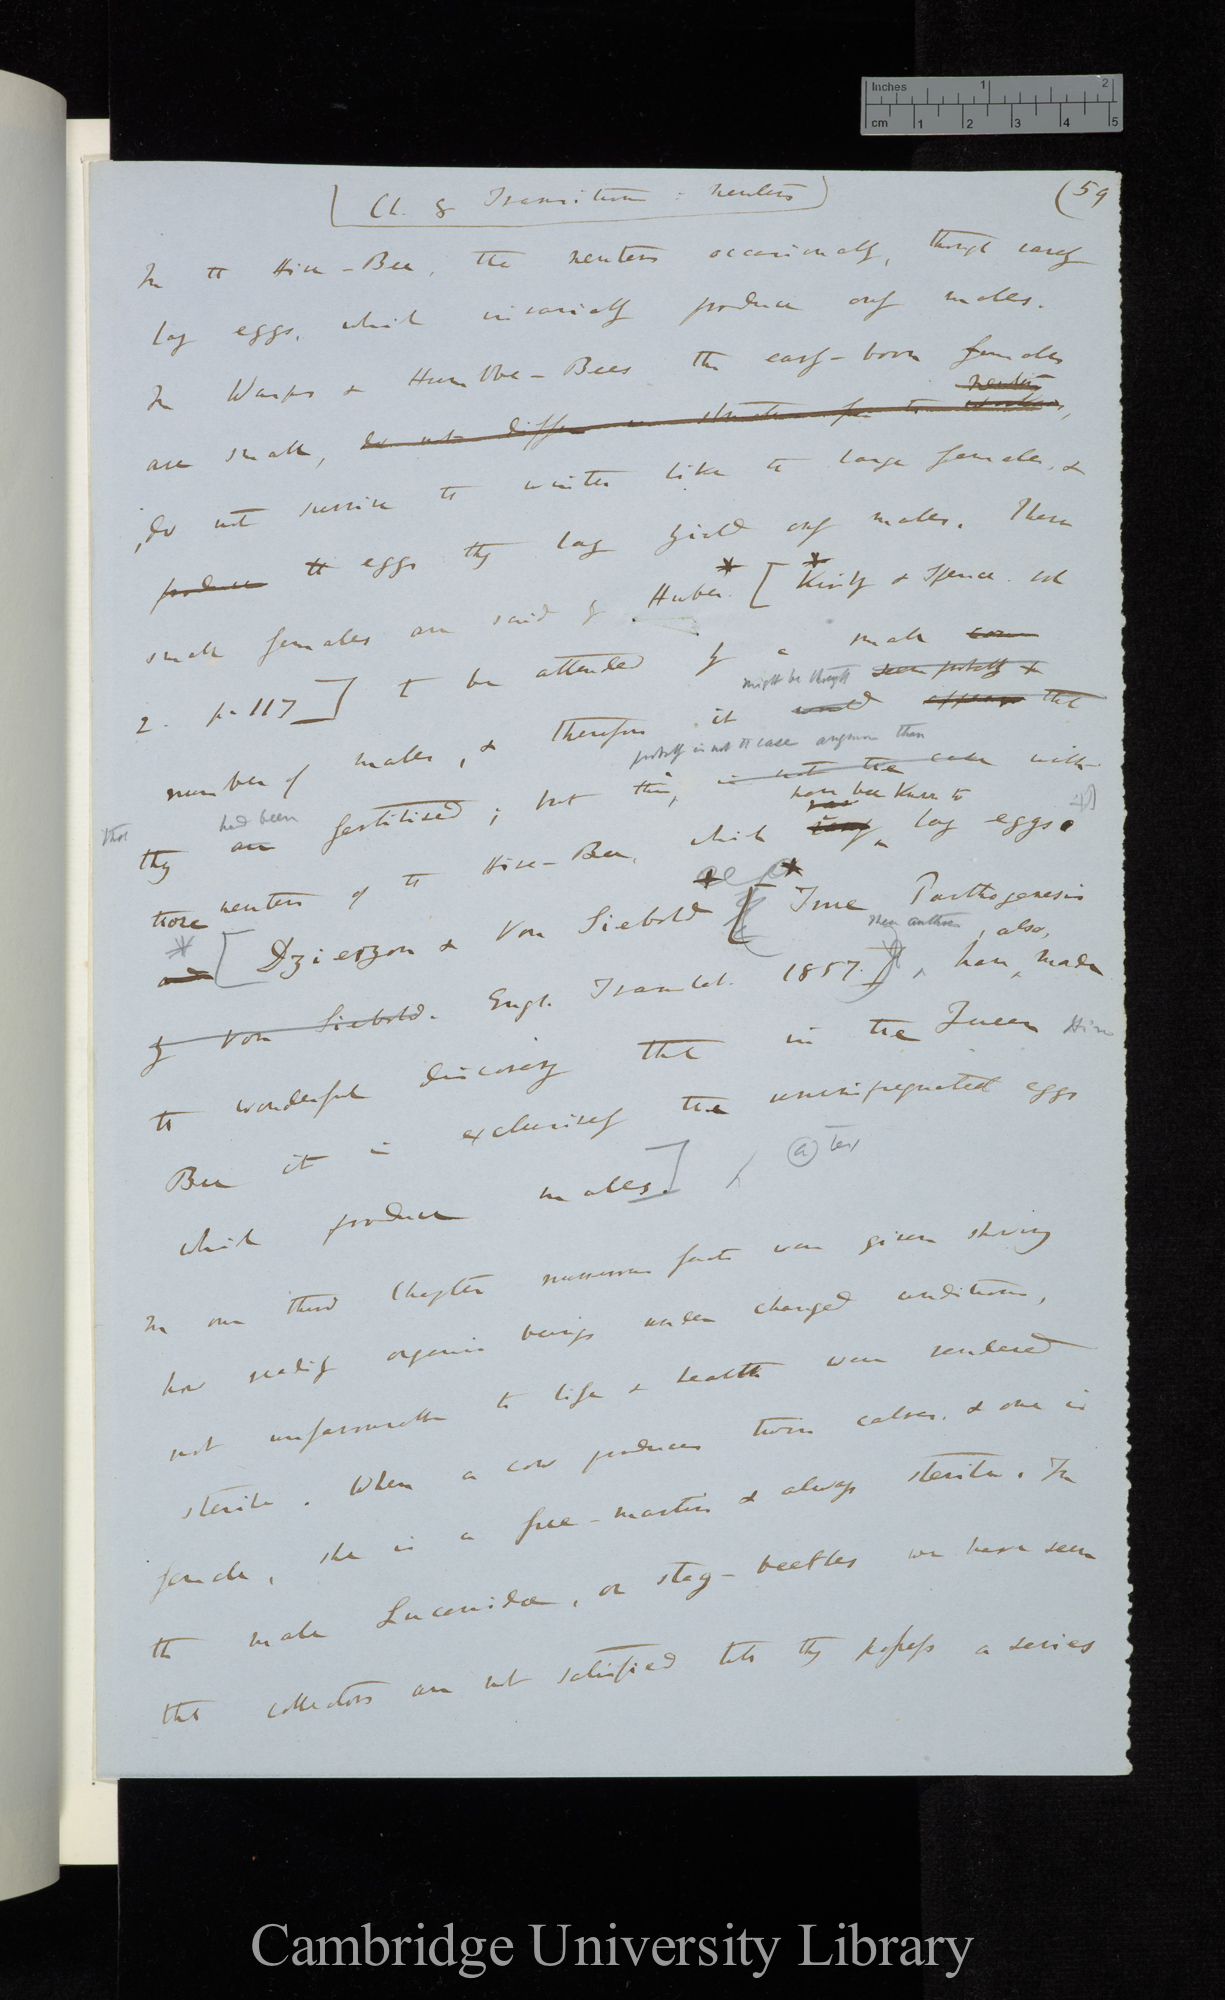 Inches 1 2
cm 1 2 3 4 5
(Ch. 8 Transition : Neuters)
(59
In the Hive-Bee, the neuters occasionally, though rarely
lay eggs, which invariably produce only males.
In Wasps & Humble-Bees the early-born females
neuters
are small, do not differ in structure from the workers,
do not survive the winter like the large females, &
produce the eggs they lay yield only males. These
small females are said by Huber * [* Kirby & Spence vol
2. p. 117] to be attended by a small
might be thought seem probably &
number of males, & therefore it would appear that
probably is not the case anymore than
that had been
they are fertilised; but this, is not the case with
have been known to
those neuters of the Hive-Bee, which rarely lay eggs.
* [Dzierzon & Von Siebold * [* True Parthogenesis
these authors , also,
by Von Siebold. Engl. Translat. 1857.], have made
the wonderful discovery that in the Queen Hive
Bee it is exclusively the unimpregnated eggs
which produce males.]
(a) text
In our third Chapter numerous facts were given shewing
how readily organic beings under changed conditions,
not unfavourable to life & health were rendered
sterile. When a cow produces twin calves, & one is
female, she is a free-martin & always sterile. In
the male Lucanidæ, or stag-beetles we have seen
that collectors are not satisfied till they possess a series
Cambridge University Library